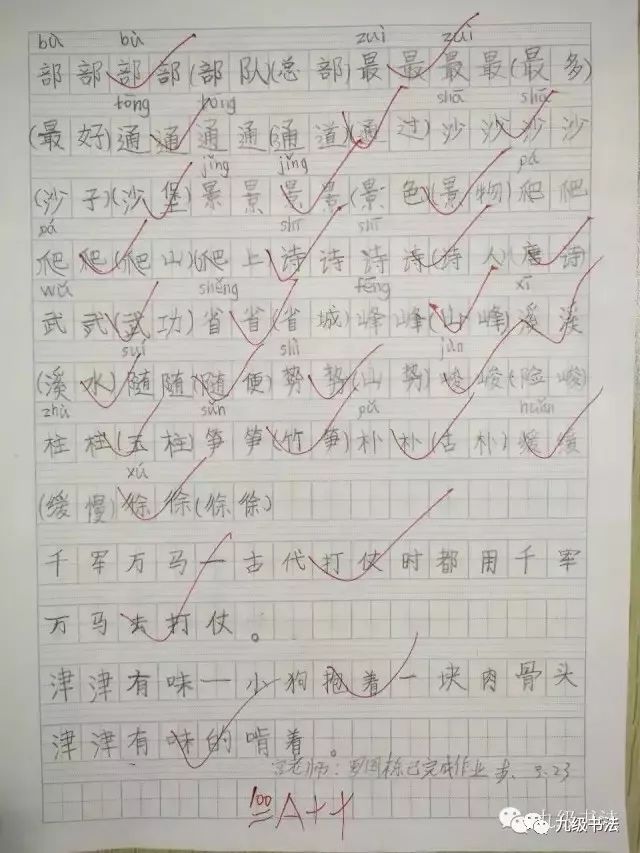 bù bù zuì zuì
部部部部(部队)(总部)最最最最(最多)
tōng tōng shā shā
(最好)通通通通(通道)(通过)沙沙沙沙
jǐng jǐng pá
(沙子)(沙堡)景景景景(景色)(景物)爬爬
pá shī shī
爬爬(爬山)(爬上)诗诗诗诗(诗人)唐诗
wǔ shěng fēng xī
武武(武功)省省(省城)峰峰(山峰)溪溪
suí shì jùn
(溪水)随随(随便)势势(山势)峻峻(险峻)
zhù sǔn pǔ huǎn
柱柱(玉柱)笋笋(竹笋)朴朴(古朴)缓缓
xú
(缓慢)徐徐(徐徐)
千军万马一古代打仗时都用千军
万马去打仗。
津津有味一小狗抱着一块肉骨头
津津有味的啃着。
老师:罗国栋已完成作业 3.23
100 A++
九级书法
九级书法